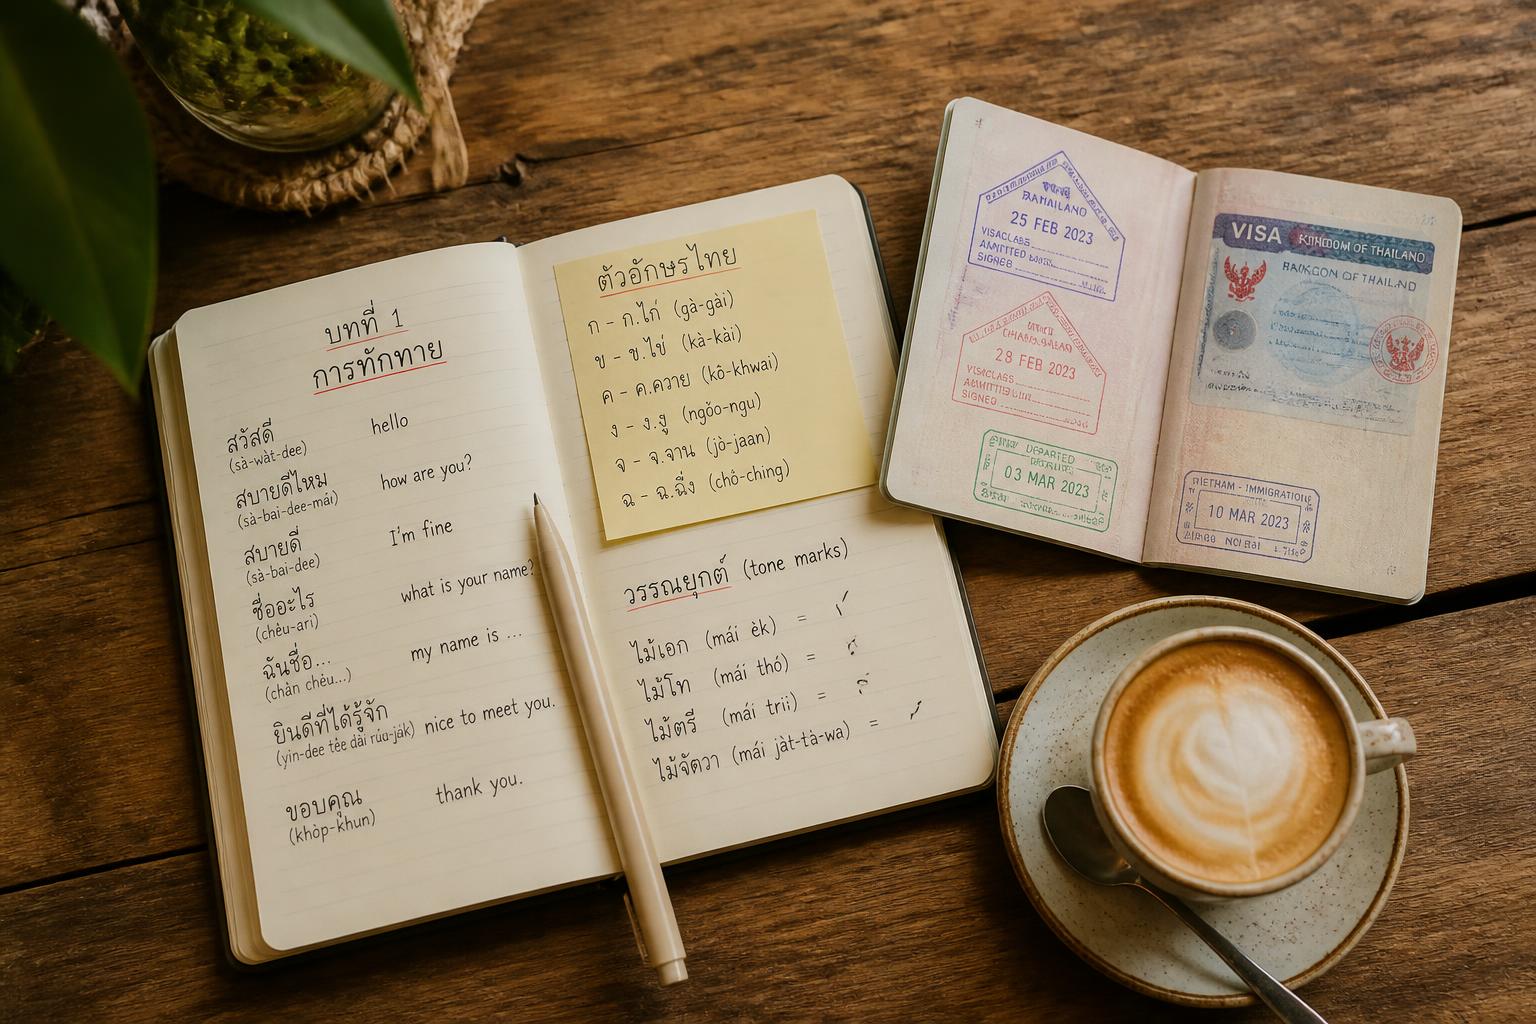 บทที่ 1
การทักทาย
สวัสดี hello
(sà-wàt-dee)
สบายดีไหม how are you?
(sà-bai-dee-mái)
สบายดี I'm fine
(sà-bai-dee)
ชื่ออะไร what is your name?
(chêu-ari)
ฉันชื่อ... my name is ...
(chàn chêu...)
ยินดีที่ได้รู้จัก nice to meet you.
(yin-dee têe dâi rúu-jàk)
ขอบคุณ thank you.
(khòp-khun)
ตัวอักษรไทย
ก - ก.ไก่ (gà-gài)
ข - ข.ไข่ (kà-kài)
ค - ค.ควาย (kô-khwai)
ง - ง.งู (ngôo-ngu)
จ - จ.จาน (jò-jaan)
ฉ - ฉ.ฉิ่ง (chô-ching)
วรรณยุกต์ (tone marks)
ไม้เอก (mái èk) =
ไม้โท (mái thó) =
ไม้ตรี (mái trii) =
ไม้จัตวา (mái jàt-tà-wa) =
25 FEB 2023
28 FEB 2023
SIGNED
DEPARTED
03 MAR 2023
VISA KINGDOM OF THAILAND
OF THAILND
- IMMIGRATION
10 MAR 2023